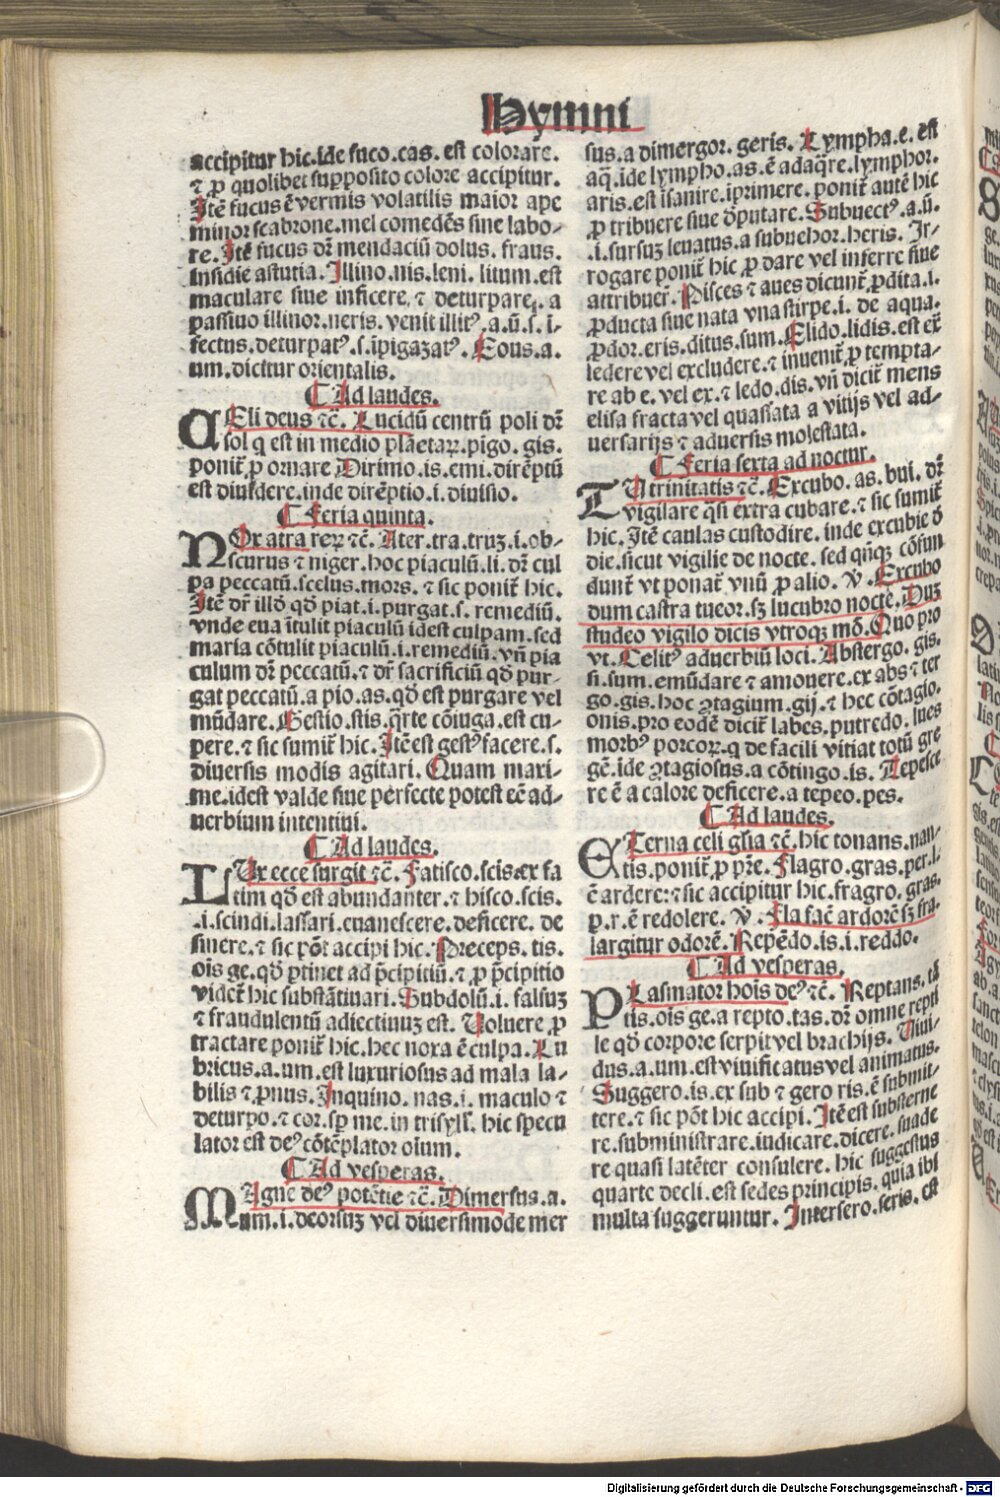 Hymni
accipitur hic.ide fuco.cas. est colorare.
⁊ ꝓ quolibet supposito colore accipitur.
Itē fucus ē vermis volatilis maior ape
minor scabrone.mel comedēs sine labo-
re. Itē fucus dr̄ mendaciū dolus. fraus.
insidie astutia. Illino.nis.leni. litum.est
maculare siue inficere. ⁊ deturpare. a
passiuo illinor.neris. venit illitꝰ.a.ū.s. i-
fectus.deturpatꝰ.s.īpigazatꝰ. Eous.a.
um.dicitur orientalis.
¶ Ad laudes.
CEli deus ⁊c̄. Lucidū centrū poli dr̄
sol q est in medio plāetaꝝ.pigo. gis.
ponit̄ ꝓ ornare Dirimo.is.emi.dirēptū
est diuidere.inde dirēptio.i.diuisio.
¶ Feria quinta.
NOx atra reꝝ ⁊c̄. Ater.tra.truꝫ.i.ob-
scurus ⁊ niger.hoc piaculū.li. dr̄ cul
pa peccatū.scelus.mors. ⁊ sic ponit̄ hic.
Itē dr̄ illd̄ qd̄ piat.i.purgat.s. remediū.
vnde eua ītulit piaculū idest culpam.sed
maria cōtulit piaculū.i.remediū.vn̄ pia
culum dr̄ peccatū.⁊ dr̄ sacrificiū qd̄ pur-
gat peccatū.a pio.as.qd̄ est purgare vel
mūdare. Gestio.stis.q̄rte cōiuga.est cu-
pere.⁊ sic sumit̄ hic. Itē est gestꝰ facere.s.
diuersis modis agitari. Quam maxi-
me.idest valde siue perfecte potest eē ad-
uerbium intentiui.
¶ Ad laudes.
LUx ecce surgit ⁊c̄. Fatisco.scis.ex fa
tim qd̄ est abundanter.⁊ hisco.scis.
.i.scindi.lassari.euanescere.deficere. de
sinere.⁊ sic pōt accipi hic. Preceps. tis.
ois ge.qd̄ ptinet ad p̄cipitiū.⁊ ꝓ p̄cipitio
videt̄ hic substātiuari. Subdolū.i. falsuꝫ
⁊ fraudulentū adiectiuuꝫ est. Voluere ꝓ
tractare ponit̄ hic.hec noxa ē culpa. Lu
bricus.a.um.est luxuriosus ad mala la-
bilis ⁊ ꝓnus. Inquino. nas.i. maculo ⁊
deturpo.⁊ cor.sp me.in trisyll̄. hic specu
lator est deꝰ cōtēplator oium.
¶ Ad vesperas.
MAgne deꝰ potētie ⁊c̄. Dimersus.a.
um.i.deorsuꝫ vel diuersimode mer
sus.a dimergor. geris. Lympha.e. est
aq̄.ide lympho.as.ē adaq̄re.lymphor.
aris.est īsanire.īprimere. ponit̄ autē hic
ꝓ tribuere siue dputare. Subuectꝰ.a.ū.
.i.sursuꝫ leuatus.a subuehor.heris. Ir-
rogare ponit̄ hic ꝓ dare vel inferre siue
attribuer̄. Pisces ⁊ aues dicunt̄ ꝓdita.i.
ꝓducta siue nata vna stirpe.i. de aqua.
ꝓdor.eris.ditus.sum. Elido.lidis.est ex̄
ledere vel excludere.⁊ inuenit̄ ꝓ tempta-
re ab e. vel ex.⁊ ledo.dis.vn̄ dicit̄ mens
elisa fracta vel quassata a vitijs vel ad-
uersarijs ⁊ aduersis molestata.
¶ Feria sexta ad noctur.
TU trinitatis ⁊c̄. Excubo. as. bui. dr̄
vigilare q̄si extra cubare.⁊ sic sumit̄
hic. Itē caulas custodire. inde excubie d
die.sicut vigilie de nocte. sed qn̄qꝫ cōfun
dunt̄ vt ponat̄ vnū ꝓ alio. ꝟ. Excubo
dum castra tueor.sꝫ lucubro nocte. Duꝫ
studeo vigilo dicis vtroqꝫ mō. Quo pro
vt. Celitꝰ aduerbiū loci. Abstergo. gis.
si.sum.emūdare ⁊ amouere.ex abs ⁊ ter
go.gis.hoc ꝯtagium.gij.⁊ hec cōtagio.
onis.pro eodē dicit̄ labes.putredo. lues
morbꝰ porcoꝝ.q de facili vitiat totū gre
gē.ide ꝯtagiosus.a cōtingo.is. Tepesce
re ē a calore deficere.a tepeo.pes.
¶ Ad laudes.
ETerna celi gl̄ia ⁊c̄. hic tonans.nan-
tis.ponit̄ ꝓ pr̄e. Flagro.gras.per.l.
ē ardere:⁊ sic accipitur hic.fragro. gras.
p.r.ē redolere. ꝟ. Fla fac̄ ardorē sꝫ fra.
largitur odorē. Repēdo.is.i.reddo.
¶ Ad vesperas.
PLasmator hois deꝰ ⁊c̄. Reptans. tā
tis.ois ge.a repto.tas.dr̄ omne repti
le qd̄ corpore serpit vel brachijs. Viui-
dus.a.um.est viuificatus vel animatus.
Suggero.is.ex sub ⁊ gero ris.ē submit-
tere.⁊ sic pōt hic accipi. Itē est substerne
re.subministrare.iudicare.dicere. suade
re quasi latēter consulere. hic suggestus
quarte decli.est sedes principis. quia ibi
multa suggeruntur. Intersero.seris. est
Digitalisierung gefördert durch die Deutsche Forschungsgemeinschaft - DFG